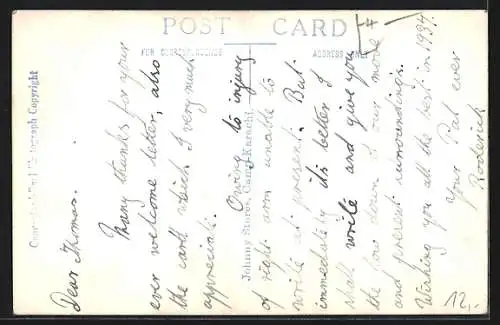 POST CARD
FOR CORRESPONDENCE
ADDRESS ONLY
Photograph Copyright
Johnny Stores, Camp Karachi.
Dear Thomas.
Many thanks for your
ever welcome letter, also
the card which I very much
appreciate.
Owing to injury
of right arm unable to
write at present. But
immediately its better I
shall write and give you
the low down of our move
and present surroundings.
Wishing you all the best in 1937.
Your Pal ever
Roderick
12,-